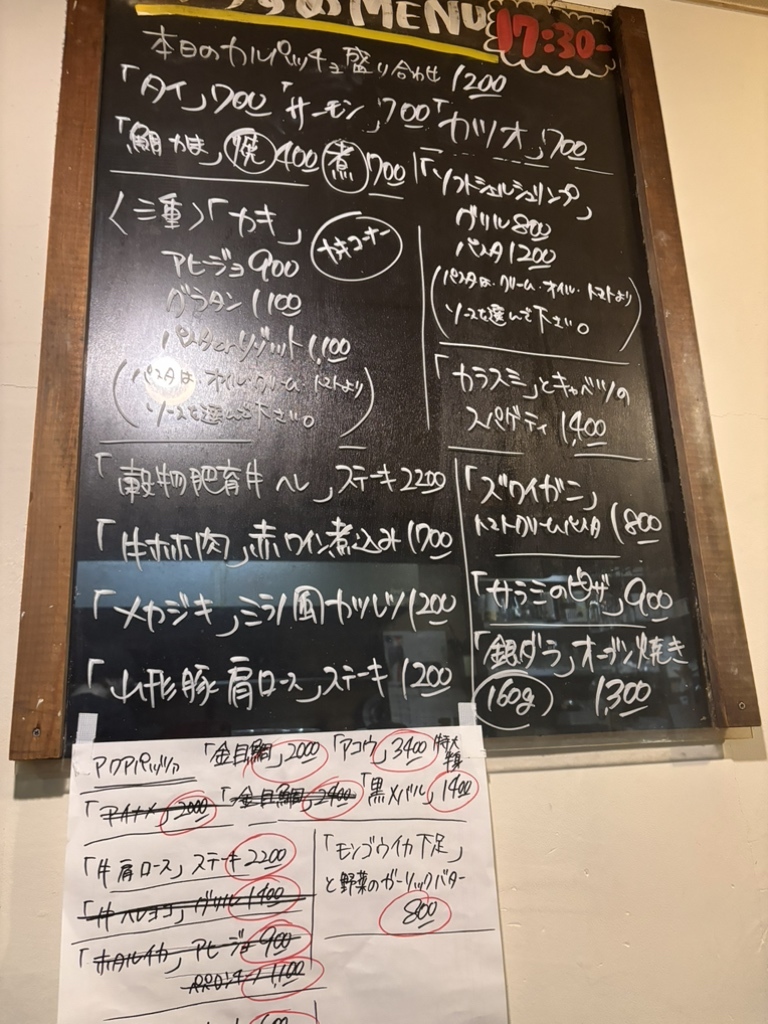 すめMENU
17:30-
本日のカルパッチョ盛り合わせ 1200
「タイ」700「サーモン」700「カツオ」700
「鯛かま」焼400 煮700
〈三重〉「カキ」
カキコーナー
アヒージョ900
グラタン1,100
パスタorリゾット1,100
(パスタは・オイル・クリーム・トマトより
ソースを選んで下さい。)
「ソフトシェルシュリンプ」
グリル800
パスタ1200
(パスタは・クリーム・オイル・トマトより
ソースを選んで下さい。)
「カラスミ」とキャベツの
スパゲティ 1,400
「穀物肥育牛ヘレ」ステーキ2200
「牛ホホ肉」赤ワイン煮込み1700
「メカジキ」ミラノ風カツレツ1200
「山形豚肩ロース」ステーキ1200
「ズワイガニ」
トマトクリームパスタ1800
「サラミのピザ」900
「銀ダラ」オーブン焼き
160g 1,300
アクアパッツァ 「金目鯛」2000 「アコウ」3400 特大
「アイナメ」2000 「金目鯛」2400 「黒メバル」1400
「牛肩ロース」ステーキ2200
グリル1400
「ホタルイカ」アヒージョ900
ペペロンチーノ1,100
「モンゴウイカ下足」
と野菜のガーリックバター
800